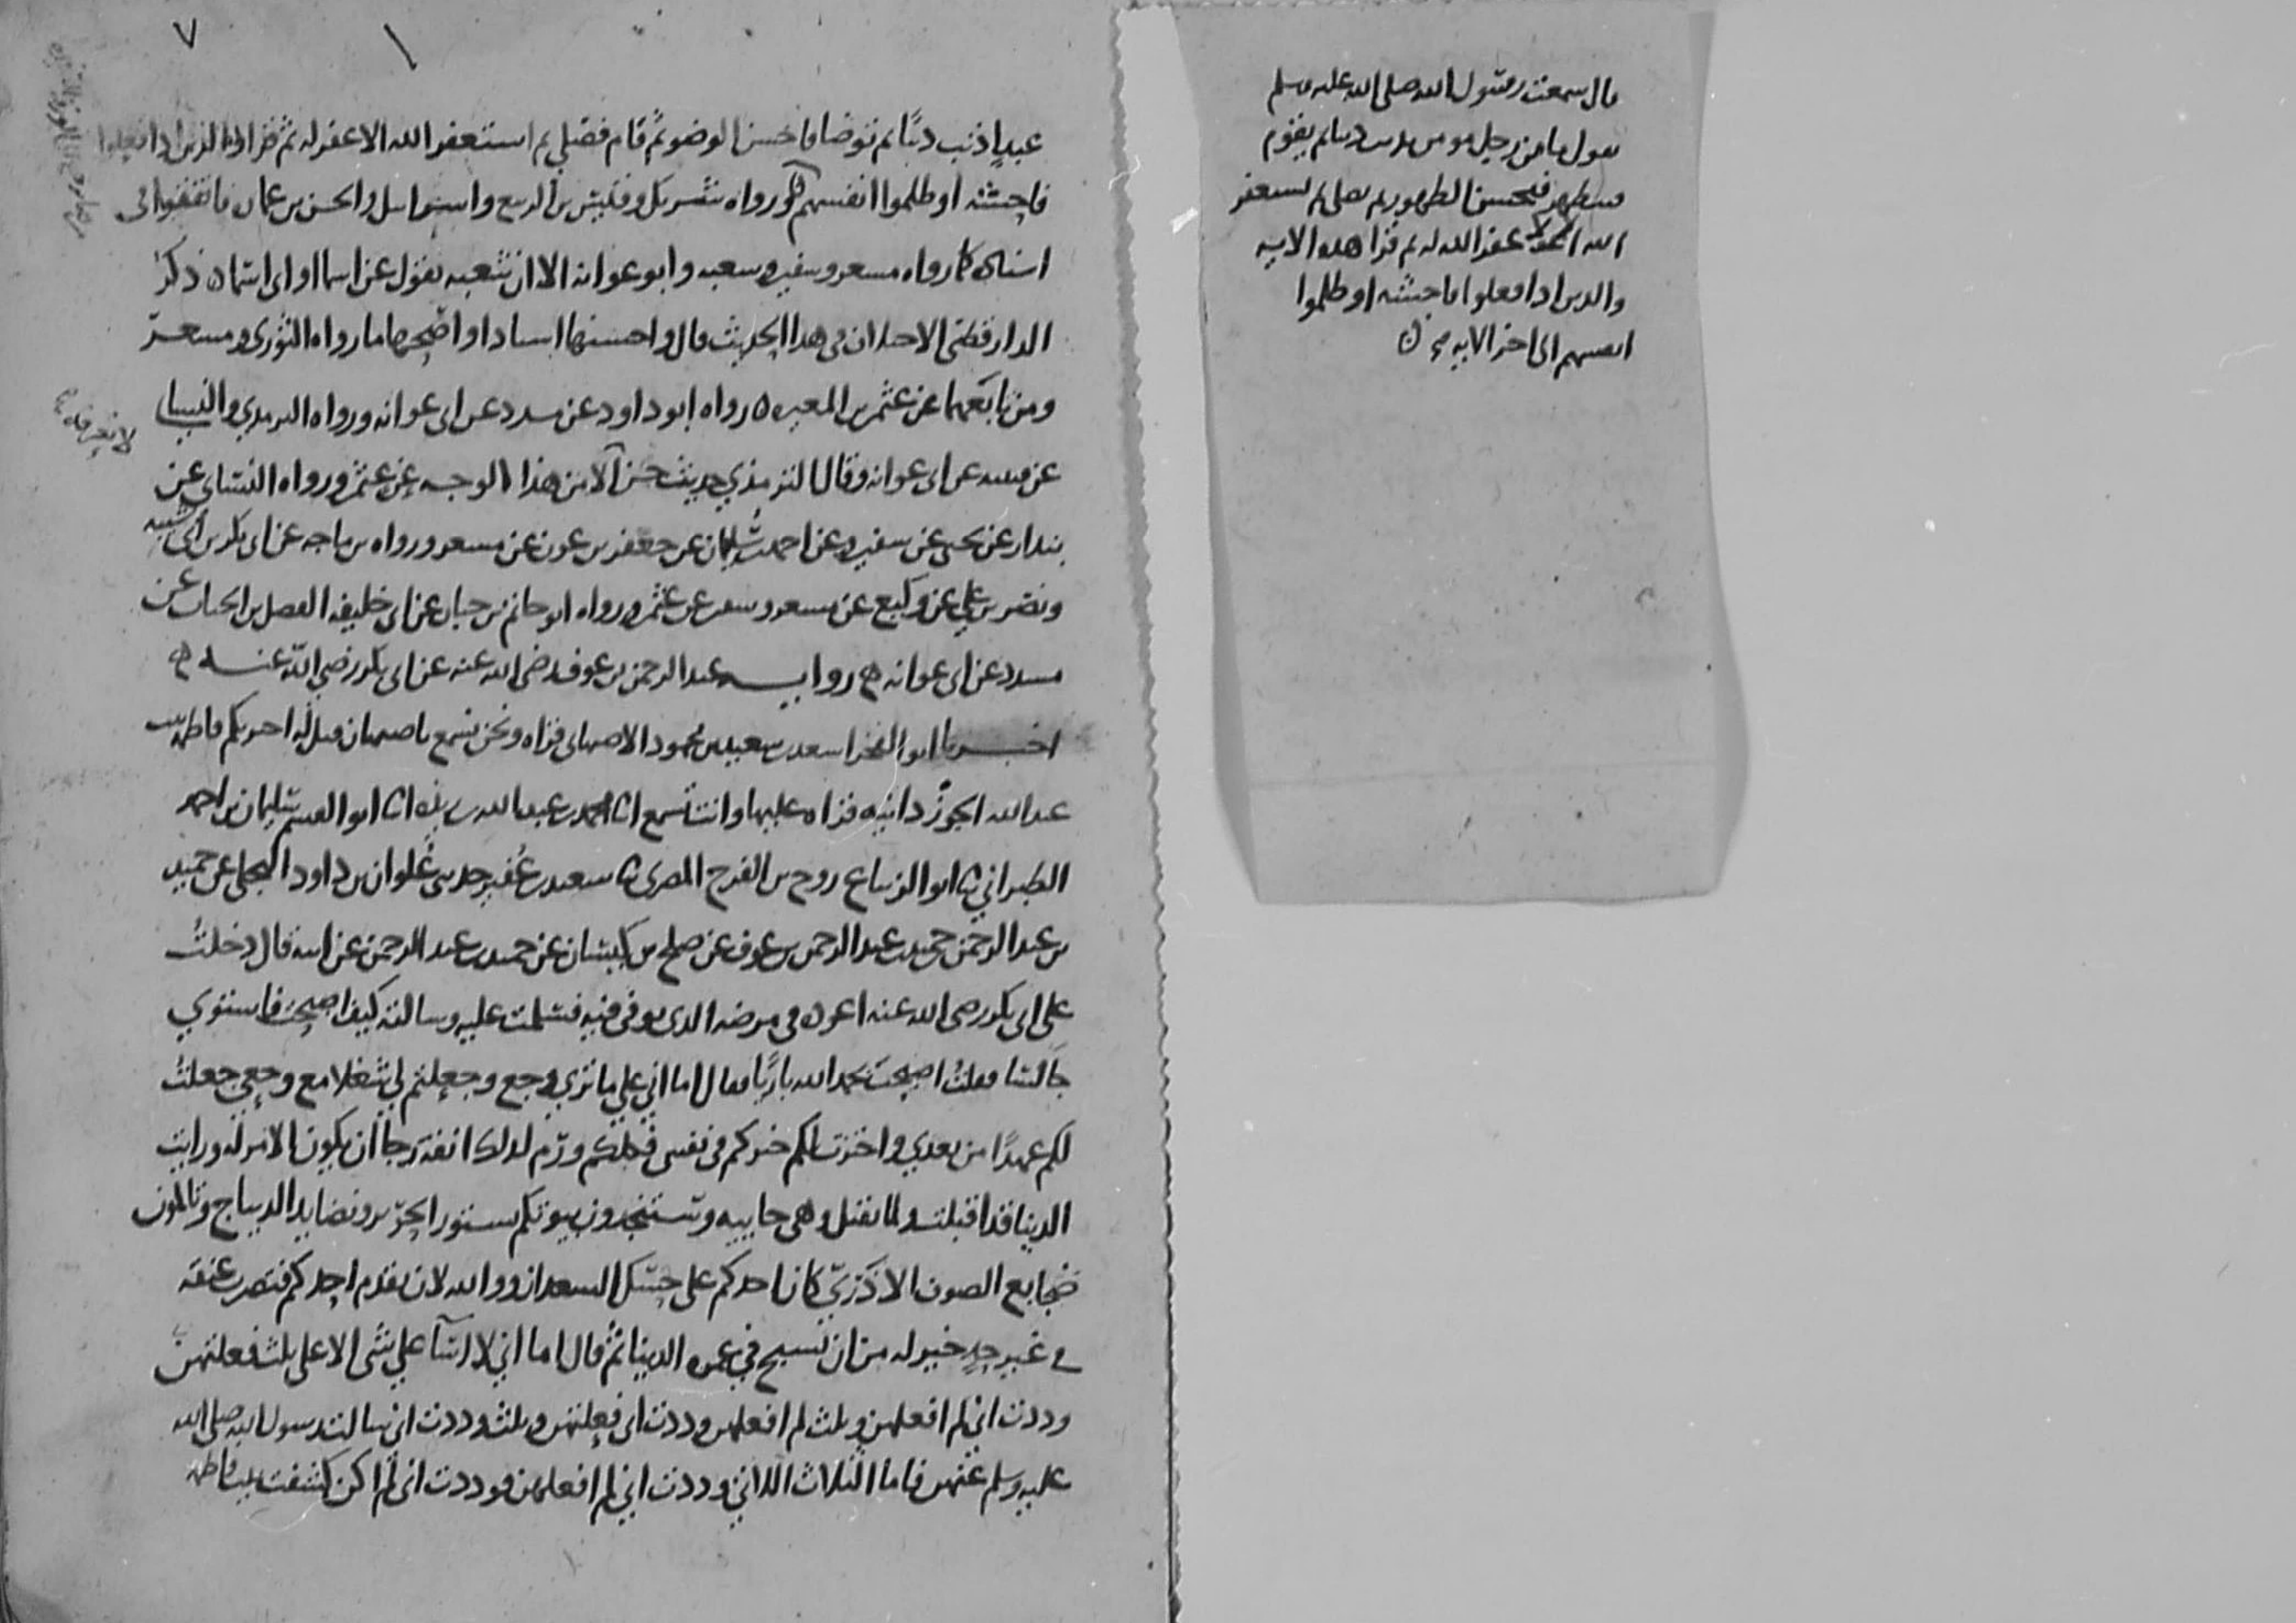 قال سمعت رسول الله صلى الله عليه وسلم
يقول ما من رجل مومن يذنب ذنبا ثم يقوم
فيتطهر فيحسن الطهور ثم يصلي ثم يستغفر
الله الا غفر الله له ثم قرا هذه الاية
والذين اذا فعلوا فاحشة او ظلموا
انفسهم الى اخر الاية
٧
عبد اذنب ذنبا ثم توضا فاحسن الوضو ثم قام فصلى ثم استغفر الله الا غفر له ثم قرا والذين اذا فعلوا
فاحشة او ظلموا انفسهم رواه شريك وقيس بن الربيع واسرايل والحسن بن عمارة فاتفقوا في
اسناده كما رواه مسعر وسفين وشعبه وابو عوانه الا ان شعبه يقول عن اسما او ابن اسما ذكر
الدارقطني الاختلاف في هذا الحديث قال واحسنها اسنادا واصحها ما رواه الثوري ومسعر
ومن تابعهما عن عثمن بن المغيره رواه ابو داود عن مسدد عن ابي عوانه ورواه الترمذي والنسائي
لا نعرفه
عن قتيبه عن ابي عوانه وقال الترمذي حديث حسن الا من هذا الوجه عن عثمن ورواه النسائي عن
بندار عن يحيى عن سفين وعن احمد بن سليمان عن جعفر بن عون عن مسعر ورواه بن ماجه عن ابي بكر بن ابي شيبه
ونصر بن علي عن وكيع عن مسعر وسفين عن عثمن ورواه ابو حاتم بن حبان عن ابي خليفه الفضل بن الحباب عن
مسدد عن ابي عوانه روايه عبد الرحمن بن عوف رضي الله عنه عن ابي بكر رضي الله عنه
اخبرنا ابو الفخر اسعد بن سعيد بن محمود الاصبهاني قراه ونحن نسمع باصبهان قيل له اخبرتكم فاطمه بنت
عبد الله الجوزدانيه قراه عليها وانت تسمع انا محمد بن عبد الله بن ريذه انا ابو القسم سليمان بن احمد
الطبراني ثا ابو الزنباع روح بن الفرج المصري ثا سعيد بن عفير حدثني علوان بن داود البجلي عن حميد
بن عبد الرحمن بن حميد بن عبد الرحمن بن عوف عن صلح بن كيسان عن حميد بن عبد الرحمن عن ابيه قال دخلت
على ابي بكر رضي الله عنه اعوده في مرضه الذي توفي فيه فسلمت عليه وسالته كيف اصبحت فاستوى
جالسا فقلت اصبحت بحمد الله باريا فقال اما اني على ما ترى وجع وجعلتم لي شغلا مع وجعي جعلت
لكم عهدا من بعدي واخترت لكم خيركم في نفسي فكلكم ورم لذلك انفه رجا ان يكون الامر له ورايت
الدنيا قد اقبلت ولما تقبل وهي جاييه وستنجدون بيوتكم بستور الحرير ونضايد الديباج وتالمون
ضجايع الصوف الاذربي كان احدكم على حسك السعدان ووالله لان يقدم احدكم فتضرب عنقه
في غير حد خير له من ان يسبح في غمره الدنيا ثم قال اما اني لا اسا على شي الا على ثلث فعلتهن
وددت اني لم افعلهن وثلث لم افعلهن وددت اني فعلتهن وثلث وددت اني سالت رسول الله صلى الله
عليه وسلم عنهن فاما الثلاث اللاتي وددت اني لم افعلهن فوددت اني لم اكن كشفت بيت فاطمه